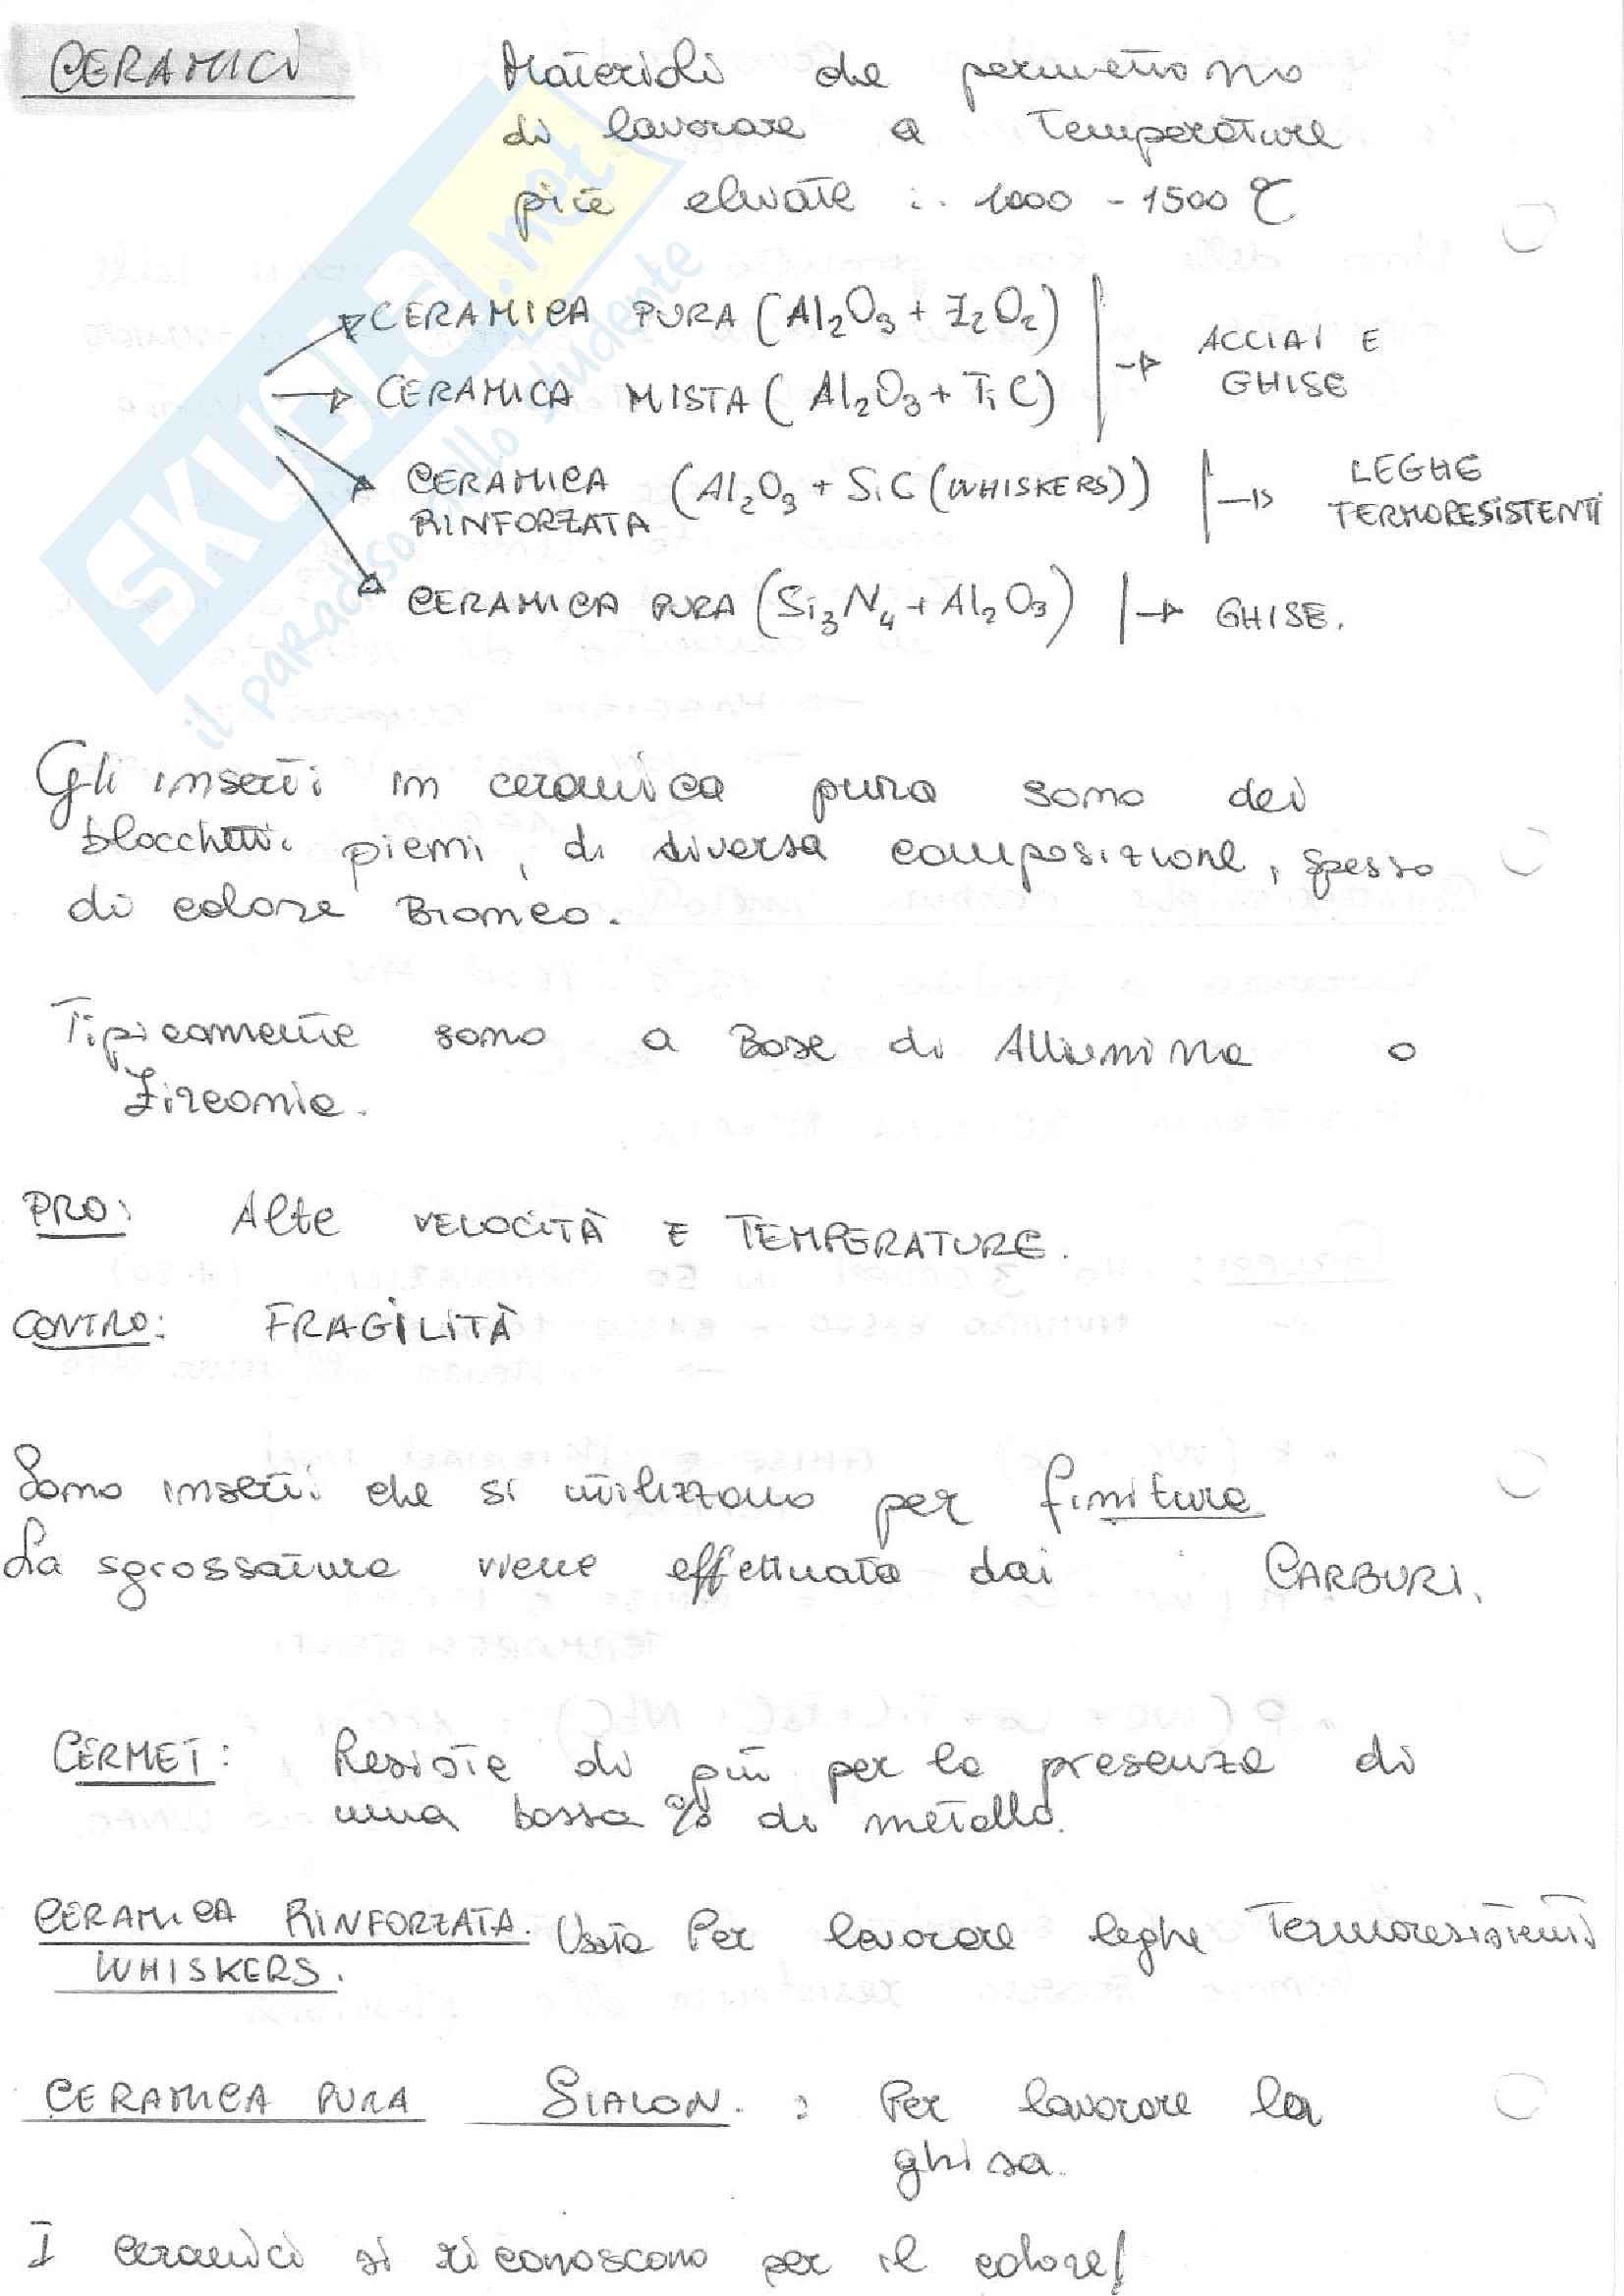 CERAMICI Materiali che permettono
di lavorare a temperature
più elevate : 1000 - 1500 °C
CERAMICA PURA (Al2O3 + Z2O2)
CERAMICA MISTA (Al2O3 + TiC)
→ ACCIAI E
GHISE
CERAMICA
RINFORZATA (Al2O3 + SiC (WHISKERS)) → LEGHE
TERMORESISTENTI
CERAMICA PURA (Si3N4 + Al2O3) → GHISE.
Gli inserti in ceramica pura sono dei
blocchetti pieni, di diversa composizione, spesso
di colore Bianco.
Tipicamente sono a Base di Allumina o
Zirconia.
PRO: Alte VELOCITÀ E TEMPERATURE.
CONTRO: FRAGILITÀ
Sono inserti che si utilizzano per finitura
La sgrossatura viene effettuata dai CARBURI.
CERMET: Resiste di più per la presenza di
una bassa % di metallo.
CERAMICA RINFORZATA. Usata Per lavorare leghe Termoresistenti
WHISKERS.
CERAMICA PURA SIALON. : Per lavorare la
ghisa.
I ceramici si riconoscono per il colore!
SKUOLA.net
il paradiso dello studente